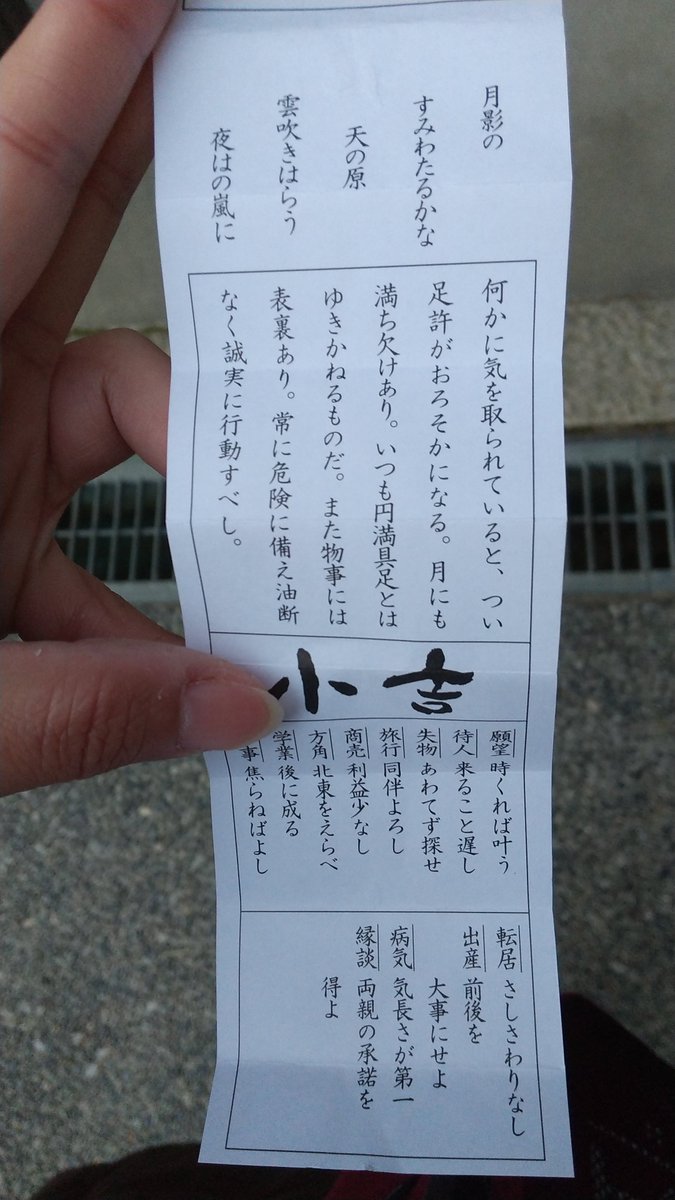 月影の
すみわたるかな
天の原
雲吹きはらう
夜はの嵐に
何かに気を取られていると、つい
足許がおろそかになる。月にも
満ち欠けあり。いつも円満具足とは
ゆきかねるものだ。また物事には
表裏あり。常に危険に備え油断
なく誠実に行動すべし。
小吉
願望 時くれば叶う
待人 来ること遅し
失物 あわてず探せ
旅行 同伴よろし
商売 利益少なし
方角 北東をえらべ
学業 後に成る
事 焦らねばよし
転居 さしさわりなし
出産 前後を
大事にせよ
病気 気長さが第一
縁談 両親の承諾を
得よ